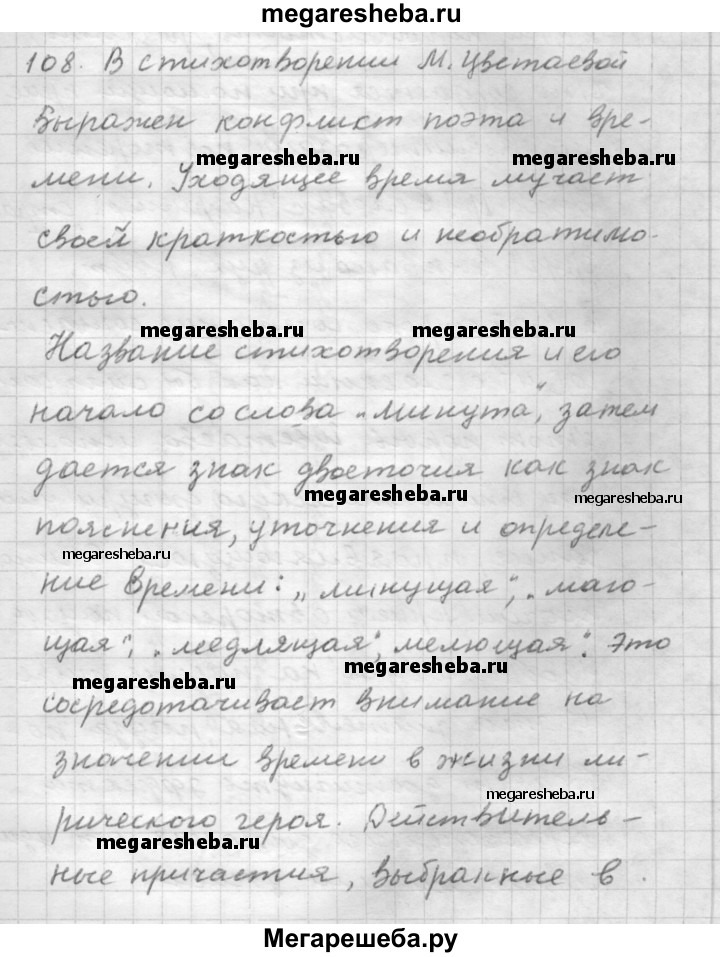 megaresheba.ru
108. В стихотворении М. Цветаевой
выражен конфликт поэта и вре-
megaresheba.ru megaresheba.ru
мени. Уходящее время мучает
своей краткостью и необратимо-
стью.
megaresheba.ru megaresheba.ru
Название стихотворения и его
начало со слова „минута“, затем
дается знак двоеточия как знак
megaresheba.ru megaresheba.ru
пояснения, уточнения и определе-
megaresheba.ru
ние времени: „минущая“, „маю-
щая“, „медлящая“, мелющая“. Это
megaresheba.ru
megaresheba.ru
сосредотачивает внимание на
значении времени в жизни ли-
megaresheba.ru
рического героя. Действитель-
megaresheba.ru
ные причастия, выбранные в
Мегарешеба.ру